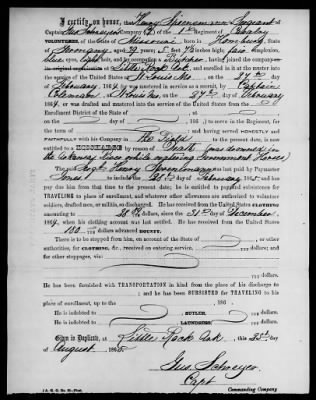 I certify, on honor, that Henry a Sergeant of
Captain Gus Schreyer company of 1st Regiment of Cavalry
VOLUNTEERS, of the State of Missouri, born in
State of Germany, aged 29 years; 5 feet 7½ inches high, fair complexion,
blue eyes, light hair, and by occupation a Butcher, having joined the company
on original organization at Little Rock Ark, and enrolled in it at the muster into
the service of the United States at St Louis Mo. on the 27th day of
February, 1864, was mustered in by Captain
Coleman at St Louis Mo. on the 27th day of February
1864, or was drafted and mustered into the service of the United States from the
Enrollment District of the State of
on the day of , 186 , to serve in the Regiment, for
the term of ; and having served HONESTLY and
FAITHFULLY with his Company in the field to the present date, is now
entitled to a DISCHARGE by reason of Death (was drowned in
the while Government Horses)
The said Sergt. Henry was last paid by Paymaster
Jones to include the 31st day of , 186 , and has
pay due him from that time to the present date; he is entitled to pay and subsistence for
TRAVELING to place of enrollment, and whatever other allowances are authorized to volunteer
soldiers, drafted men, or militia, so discharged. He has received from the United States CLOTHING
amounting to dollars, since the 31st day of December,
1864, when his clothing account was last settled. He has received from the United States
dollars advanced BOUNTY.
There is to be stopped from him, on account of the State of , or other
authorities, for CLOTHING, &c., received on entering service, dollars; and for
other stoppages, viz:
dollars.
He has been furnished with TRANSPORTATION in kind from the place of his discharge to
; and he has been SUBSISTED for TRAVELING to his
place of enrollment, up to the , 186 .
He is indebted to , SUTLER, dollars.
He is indebted to , LAUNDRESS, dollars.
Given in Duplicate, at Little Rock Ark, this 25th day
of August, 1865.
Gus. Schreyer
Capt
Commanding Company